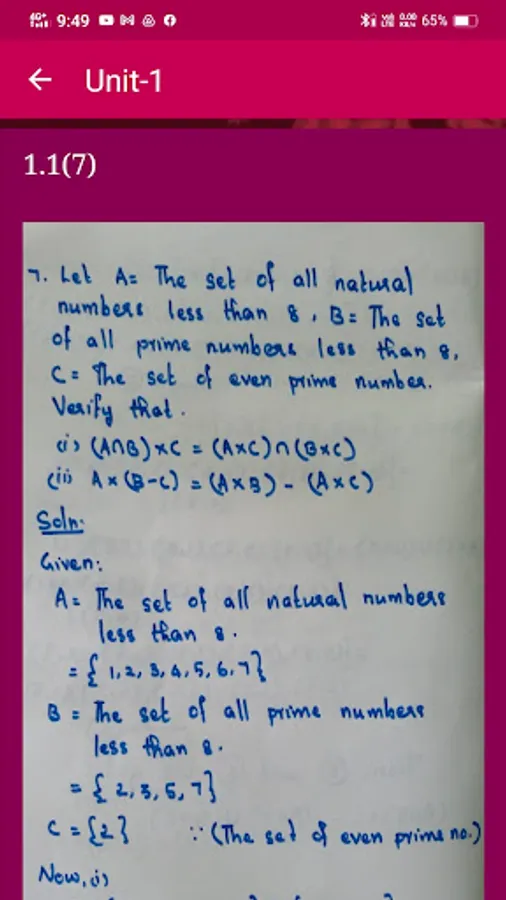 4G+ 9:49 65%
Unit-1
1.1(7)
7. Let A= The set of all natural
numbers less than 8, B= The set
of all prime numbers less than 8,
C= The set of even prime number.
Verify that.
(i) (A∩B)×C = (A×C)∩(B×C)
(ii) A×(B-C) = (A×B) - (A×C)
Soln:
Given:
A= The set of all natural numbers
less than 8.
= {1,2,3,4,5,6,7}
B = The set of all prime numbers
less than 8.
= {2,3,5,7}
C = {2} ∵ (The set of even prime no.)
Now, i)